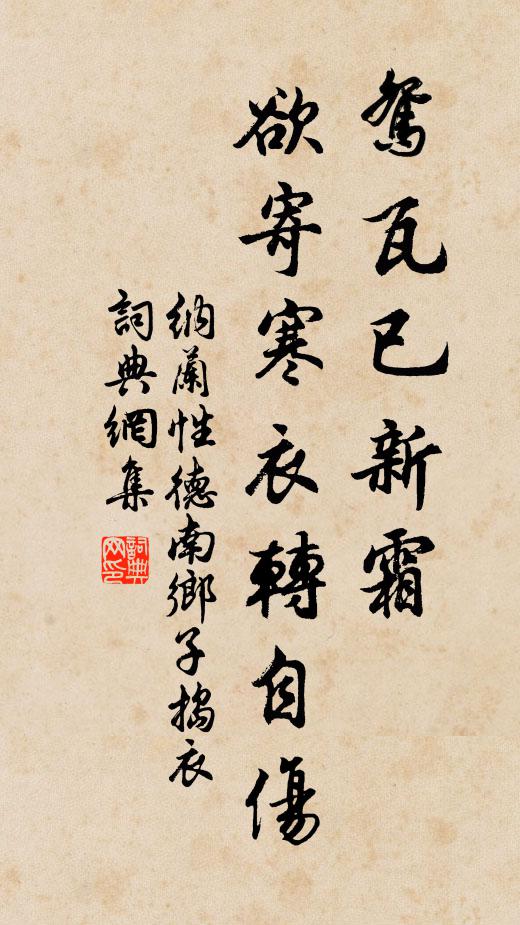 鴛瓦已新霜
欲寄寒衣轉自傷
納蘭性德南鄉子搗衣
詞典網集
詞典网印